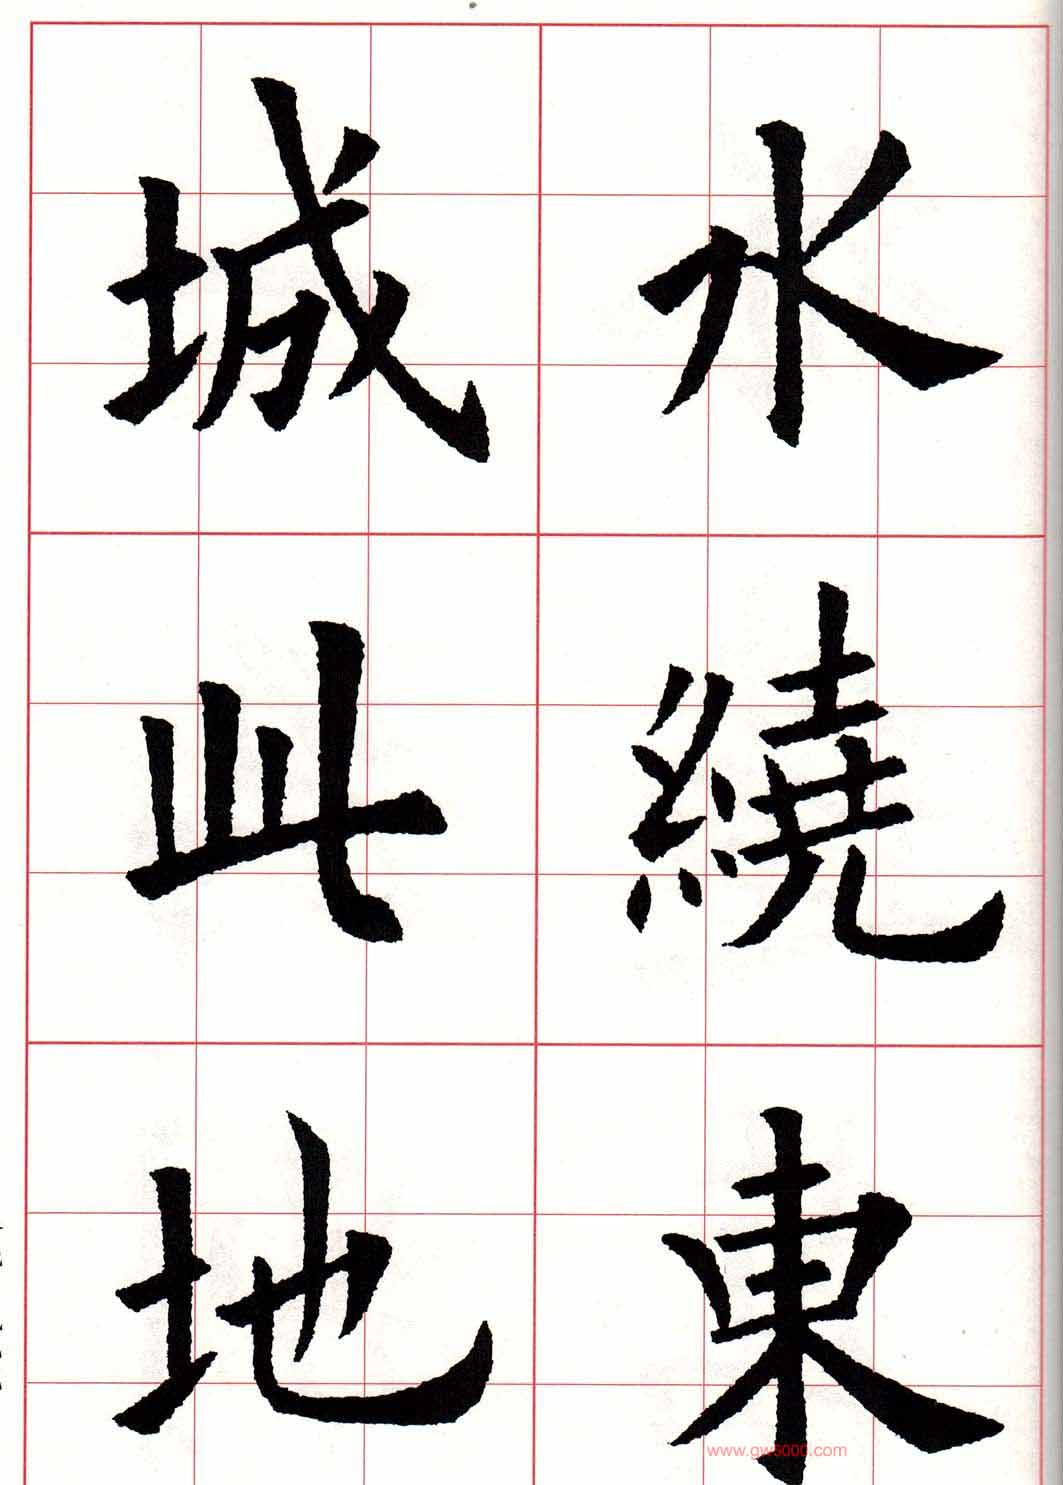 水繞東
城此地
www.gw8000.com